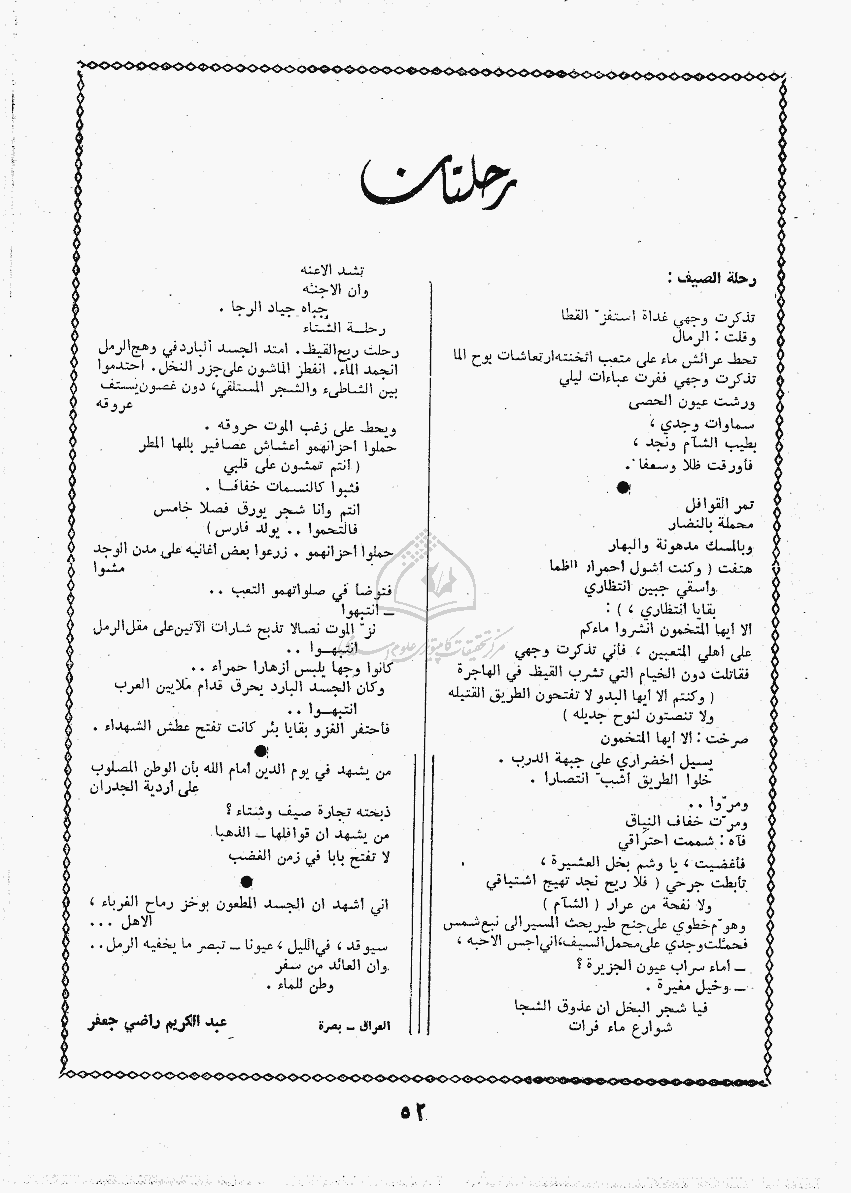 رحلتان
رحلة الصيف :
تذكرت وجهي غداة استفزّ القطا
وقلت : الرمال
تحط عرائش ماء على متعب أثخنته ارتعاشات بوح الما
تذكرت وجهي ففرت عباءات ليلي
ورشت عيون الحصى
سماوات وجدي ،
بطيب الشآم ونجد ،
فأورقت ظلا وسعفا .
●
تمر القوافل
محملة بالنضار
وبالمسك مدهونة والبهار
هتفت ( وكنت أشول احمرار الظما
وأسقي جبين انتظاري
بقايا انتظاري ، ) :
الا أيها المتخمون انشروا ماءكم
على أهلي المتعبين ، فأني تذكرت وجهي
فقاتلت دون الخيام التي تشرب القيظ في الهاجرة
( وكنتم الا أيها البدو لا تفتحون الطريق القتيله
ولا تنصتون لنوح جديله )
صرخت : الا أيها المتخمون
يسيل اخضراري على جبهة الدرب .
خلوا الطريق أشبّ انتصارا .
ومرّوا ..
ومرّت خفاف النياق
فآه : شممت احتراقي
فأغضيت ، يا وشم بخل العشيرة ،
تأبطت جرحي ( فلا ريح نجد تهيج اشتياقي
ولا نفحة من عرار ( الشآم )
وهوّم خطوي على جنح طير يحث المسير الى نبع شمس
فحملت وجدي على محمل السيف ، اني أجس الاحبه ،
ـ أماء سراب عيون الجزيرة ؟
ـ وخيل مغيرة .
فيا شجر البخل ان عذوق الشجا
شوارع ماء فرات
تشد الاعنه
وان الاجنّه
جباه جياد الرجا .
رحلة الشتاء
رحلت ريح القيظ . امتد الجسد البارد في وهج الرمل
انجمد الماء . انفطر الماشون على جزر النخل . احتدموا
بين الشاطىء والشجر المستلقي ، دون غصون يستف
عروقه
ويحط على زغب الموت حروقه .
حملوا احزانهمو أعشاش عصافير بللها المطر
( أنتم تمشون على قلبي
فثبوا كالنسمات خفافا .
أنتم وأنا شجر يورق فصلا خامس
فالتحموا .. يولد فارس )
حملوا احزانهمو . زرعوا بعض أغانيه على مدن الوجد
مشوا
فتوضأ في صلواتهمو التعب ..
ـ انتبهوا
نزّ الموت نصالا تذبح شارات الآتين على مقل الرمل
انتبهوا ..
كانوا وجها يلبس أزهارا حمراء ..
وكان الجسد البارد يحرق قدام ملايين العرب
انتبهوا ..
فأحتفر الغزو بقايا بئر كانت تفتح عطش الشهداء .
●
من يشهد في يوم الدين أمام الله بأن الوطن المصلوب
على أردية الجدران
ذبحته تجارة صيف وشتاء ؟
من يشهد ان قوافلها ـ الذهبا
لا تفتح بابا في زمن الغضب
●
اني أشهد ان الجسد المطعون بوخز رماح الغرباء ،
الاهل ...
سيوقد ، في الليل ، عيونا ـ تبصر ما يخفيه الرمل ..
وان العائد من سفر
وطن للماء .
العراق ـ بصرة
عبد الكريم راضي جعفر
٥٢